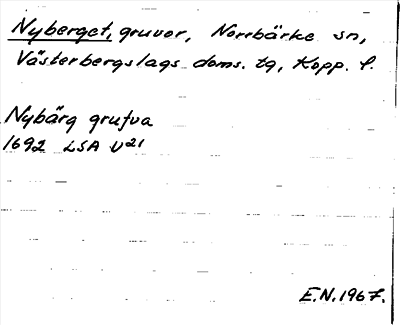 Nyberget, gruvor, Norrbärke sn,
Västerbergslags doms. tg, Kopp. l.
Nybärg grufva
1692 LSA U21
E.N. 1967.